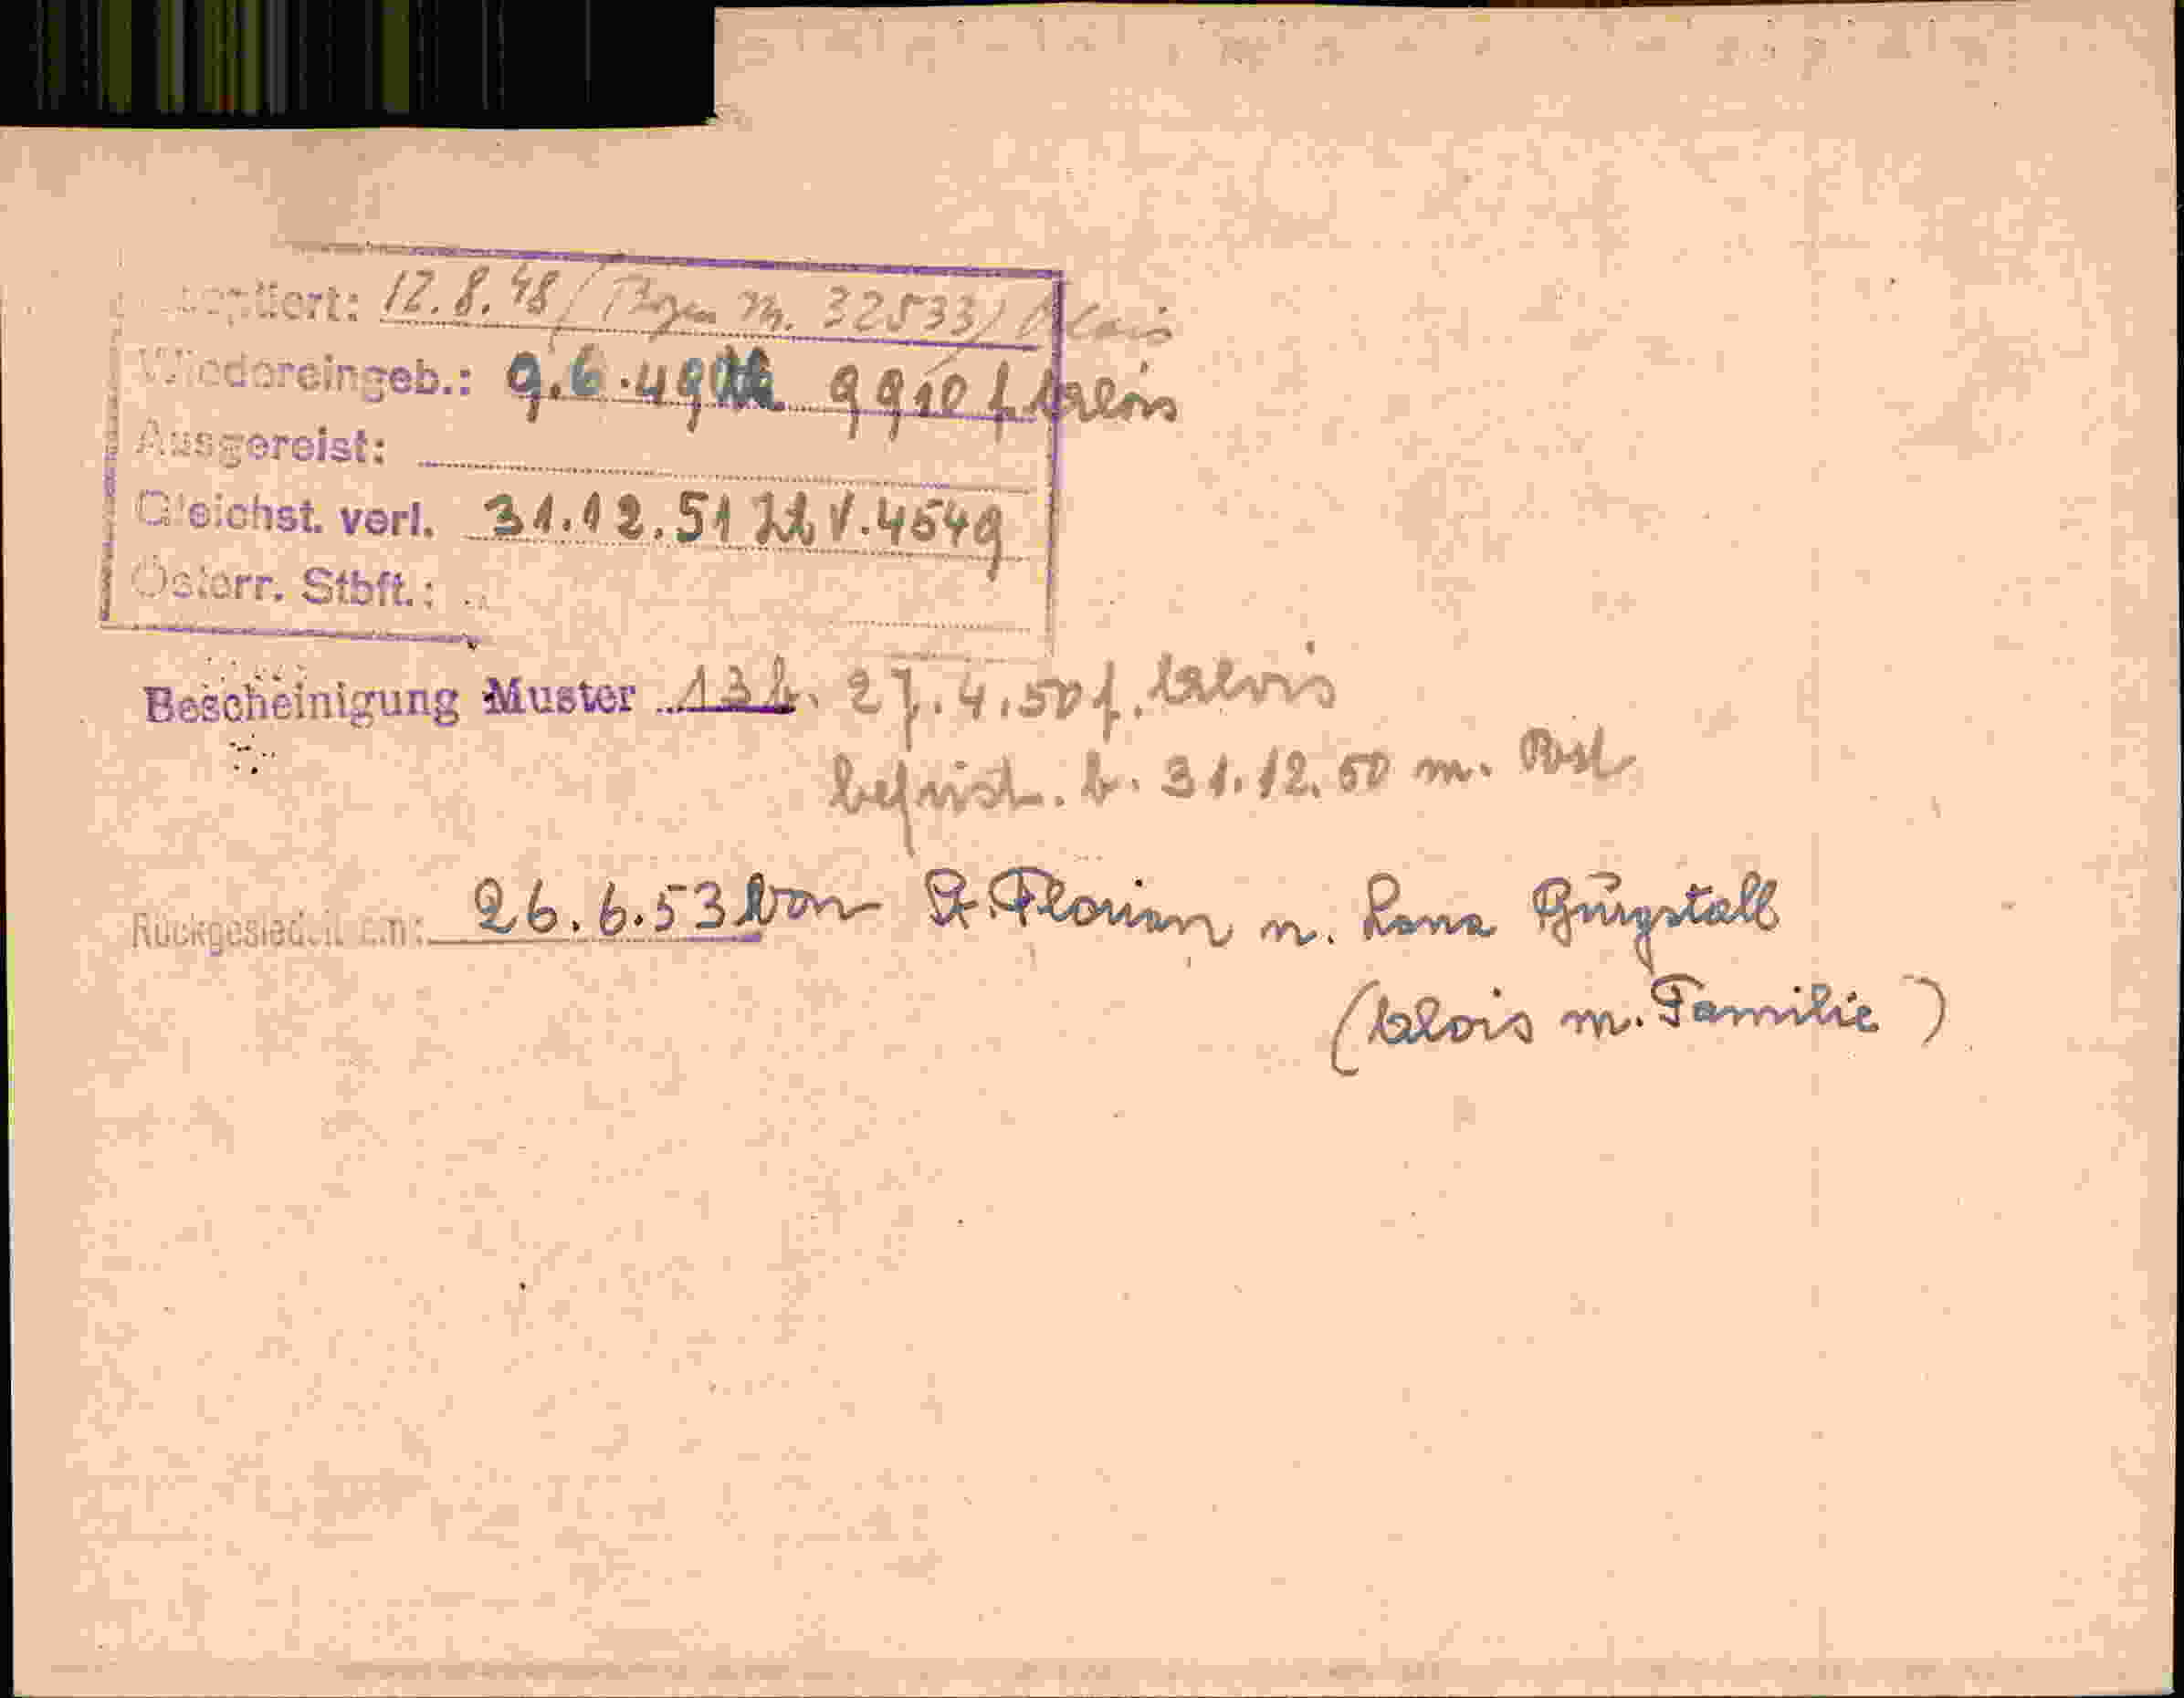 optiert: 12.8.48 / Bozen Nr. 32533) Alois
Wiedereingeb.: 9.6.49 9910 f. Alois
Ausgereist:
Gleichst. verl. 31.12.51 Zl V.4549
Österr. Stbft.:
Bescheinigung Muster 13 b. 27.4.50 f. Alois
befrist. b. 31.12.50 m. Post
Rückgesiedelt am: 26.6.53 von St. Florian n. Lana Burgstall
(Alois m. Familie)